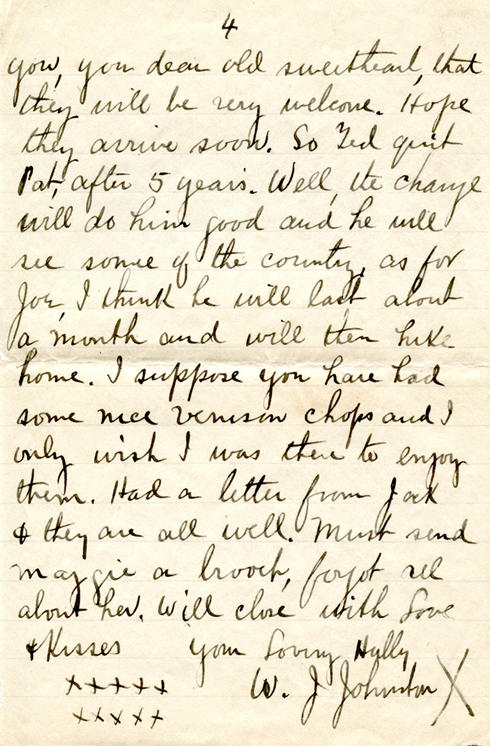 4
you, you dear old sweetheart, that
they will be very welcome. Hope
they arrive soon. So Ted quit
Pat, after 5 years. Well, the change
will do him good and he will
see some of the country, as for
Joe, I think he will last about
a month and will then hike
home. I suppose you have had
some nice venison chops and I
only wish I was there to enjoy
them. Had a letter from Jack
& they are all well. Must send
maggie a brooch, forgot all
about her. Will close with Love
& Kisses your Loving Hubby
x x x x x W. J Johnston X
x x x x x